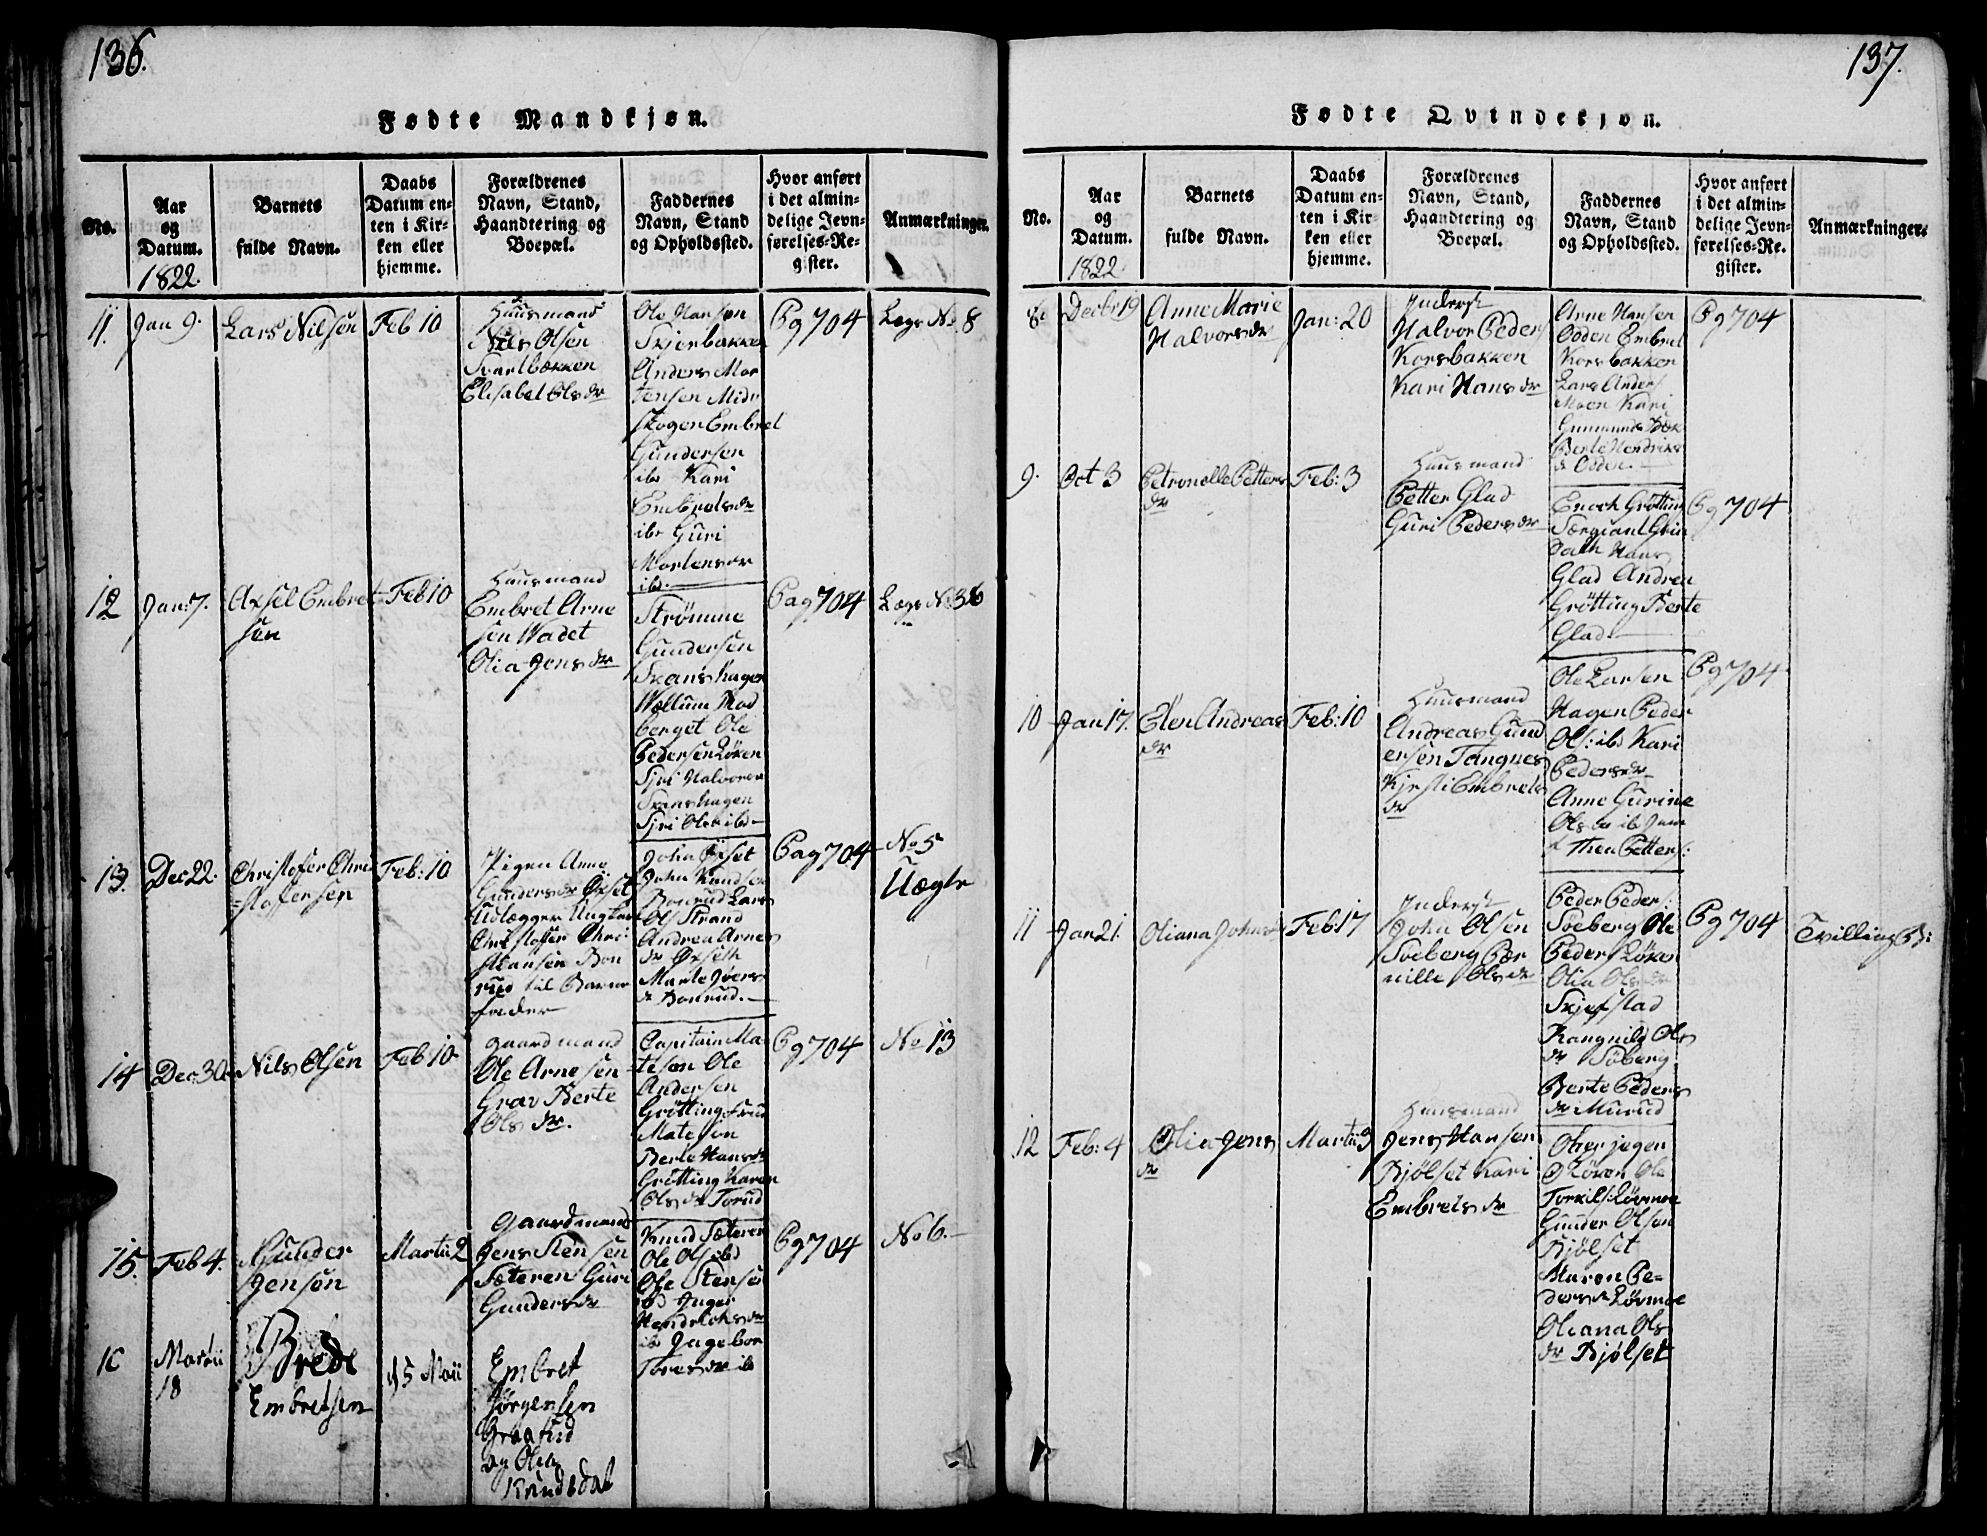 136.
Fødte Mandkjøn.
No.
Aar
og
Datum.
1822.
Barnets
fulde Navn.
Daabs
Datum en-
ten i Kir-
ken eller
hjemme.
Forældrenes
Navn, Stand,
Haandtering og
Boepæl.
Faddernes
Navn, Stand
og Opholdsted.
Hvor anført
i det almin-
delige Jevn-
førelses-Re-
gister.
Anmærkninger.
11.
Jan 9.
Lars Nilsen
Feb 10
Huusmand
Nils Olsen
Svartbækken
Elisabet Olsdr
Ole Hansen
Skjærbakken
Anders Mor
tensen Midt
skogen Embret
Gundersen
ibd Kari
Embretsdr
ibd Guri
Mortensdr
ibd
Pg 704
Lægs No 8
12
Jan: 7.
Axsel Embret
sen
Feb 10
Huusmand
Embret Arne
sen Vadet
Olia Jensdr
Strømme
Gundersen
Skanshagen
berget Ole
Pedersen Løken
Sjri Halvorsdr
Skanshagen
Sjri Olsdr ibd
Pag 704
Lægs No 36
13.
Dec 22.
Christofer Chri
stoffersen
Feb: 10
Pigen Anne
Gundersdr Øxset
Udlægger Ungkar
Christoffer Chri-
stiansen Bon
rud til Barne
fader
John Øxset
John Knudsen
Bonrud Lars
Ols Strand
Andrea Arnes
dr Øxseth
Marte Joers
dr Bonrud.
Pag 704
No 5
Uægte
14
Dec 30
Nils Olsen
Feb 10
Gaardmand
Ole Arnesen
Grav Berte
Olsdr.
Capitain Ma-
teson Ole
Andersen
Grøtting Frue
Mateson
Berte Hansdr
Grøtting Karen
Olsdr Torud
Pg 704
No 13
15.
Feb 4.
Gunder
Jensen
Martii 2
Gaardmand
Jens Stensen
Sæteren Guri
Gundersdr
Knud Sæteren
Ole Ols ibd
Ole Stensen
ibd Inger
Hendriksdr
ib Ingebor
Toresdr ib
Pg 704
No 6.
16
Martii
18
Brede
Embretsen
15 Maii
Embret
Jørgensen
Graasud
og Olia
Knudsdat
137.
Fødte Qvindekjøn.
No.
Aar
og
Datum.
1822
Barnets
fulde Navn.
Daabs
Datum en-
ten i Kir-
ken eller
hjemme.
Forældrenes
Navn, Stand,
Haandtering og
Boepæl.
Faddernes
Navn, Stand
og Opholdsted.
Hvor anført
i det almin-
delige Jevn-
førelses-Re-
gister.
Anmærkninger.
8
Decbr 19
Anne Marie
Halvorsdr
Jan: 20
Inderst
Halvor Peders
Korsbakken
Kari Hansdr
Arne Hansen
Odden Embret
Korsbakken
Lars Anders
Moen Kari
Berte Hendriks
dr Odden.
Pg 704
9.
Oct 3
Petronelle Petters
dr
Feb: 3
Huusmand
Petter Glad
Guri Pedersdr
Enoch Grøtting
Særgiant Grin
Glad Andrea
Grøtting Berte
Glad
Pg 704
10
Jan 17.
Elen Andreas
dr
Feb: 10
Huusmand
Andreas Gund
ersen Tangnes
Kjrsti Embrets
dr
Ole Larsen
Hagen Peder
Ols: ibd Kari
Pedersdr
Anne Gurine
Olsdr ib
Then Petters:
Pg 704
11
Jan 21.
Oliana Johnsdr
Feb 17
Inderst
John Olsen
Søeberg Pær
nille Olsdr
Peder Peders:
Søeberg Ole
Peders Løken
Olia Olsdr
Skjefstad
Rangnild Ols
dr Søberg
Berte Peders
dr Murud
Pg 704
Tvilling B:
12
Feb: 4
Olia Jens
dr
Martii 3
Huusmand
Jens Hansen
Bjølset Kari
Embretsdr
Ober jeger
Løken Ole
Torkils: Løvmoe
Gunder Olsen
Bjølset
Maren Pe-
dersdr Løvmoe
Oliana Ols
dr Bjølset